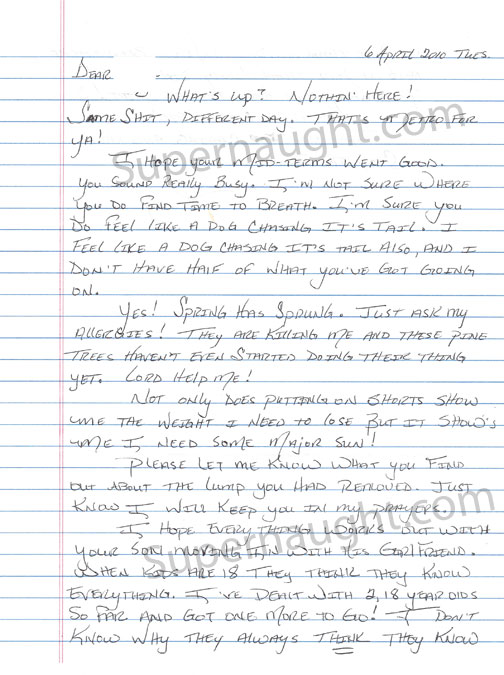 6 April 2010 Tues.
Dear
What's up? Nothin' Here!
Same Shit, Different Day. That's for
ya!
I Hope your mid-terms went good.
You sound really busy. I'm not sure where
you do find time to breath. I'm sure you
do feel like a dog chasing it's tail. I
feel like a dog chasing it's tail also, and I
don't have half of what you've got going
on.
Yes! Spring has sprung. Just ask my
allergies! They are killing me and these pine
trees haven't even started doing their thing
yet. Lord help me!
Not only does putting on shorts show
me the weight I need to lose but it show's
me I need some major sun!
Please let me know what you find
out about the lump you had removed. Just
know I will keep you in my prayers.
I hope everything works out with
your son moving in with his girlfriend.
When kids are 18 they think they know
everything. I've dealt with 2, 18 year olds
so far and got one more to go! I don't
know why they always think they know
Supernaught.com
Supernaught.com